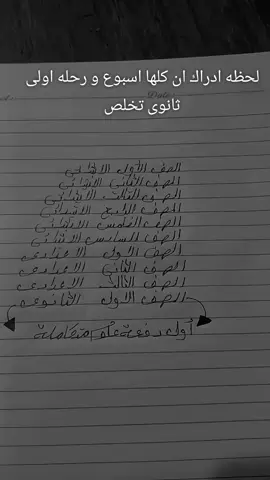 لحظه ادراك ان كلها اسبوع و رحله اولى
ثانوى تخلص
Date:
الصف الأول الابتدائي
الصف الثاني الابتدائي
الصف الثالث الابتدائي
الصف الرابع الابتدائي
الصف الخامس الابتدائي
الصف السادس الابتدائي
الصف الاول الاعدادى
الصف الثاني الاعدادى
الصف الثالث الاعدادى
الصف الاول الثانوى
أول دفعة علوم متكاملة